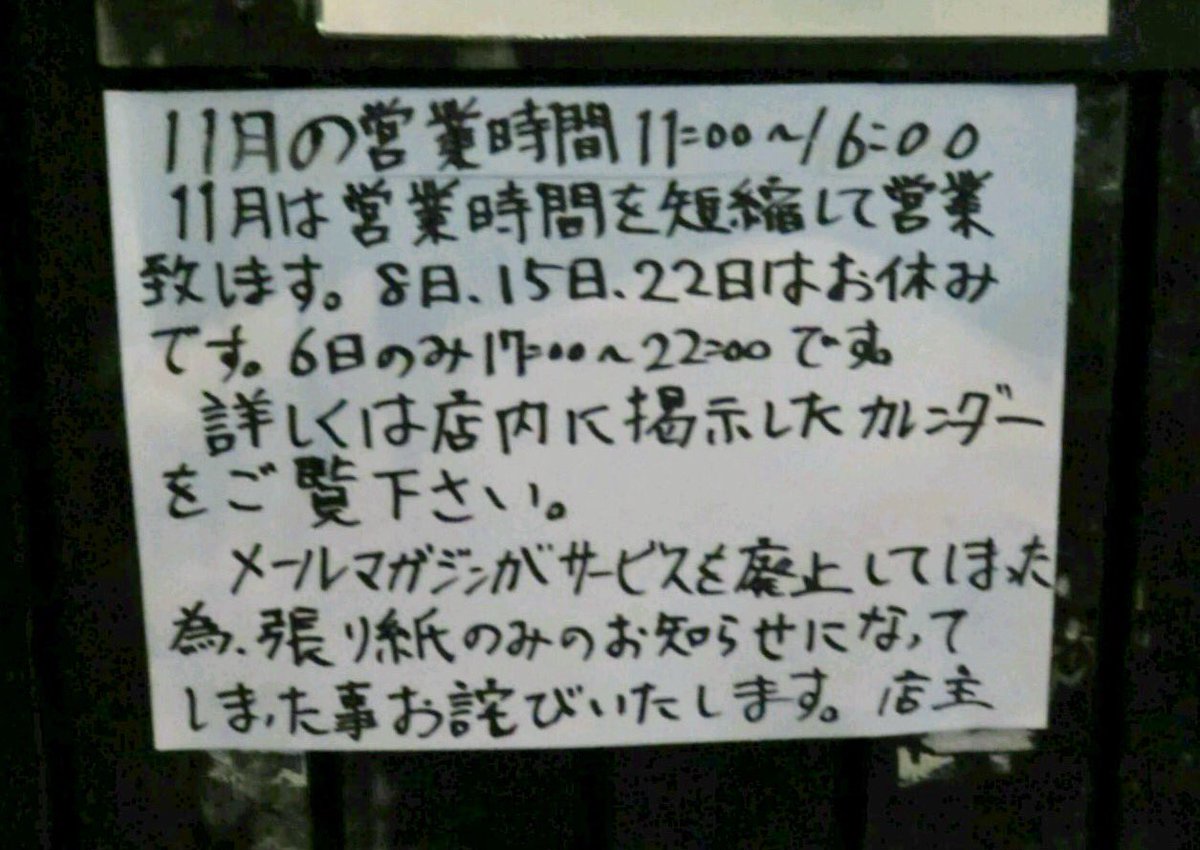 11月の営業時間11:00〜16:00
11月は営業時間を短縮して営業
致します。8日、15日、22日はお休み
です。6日のみ17:00〜22:00です。
詳しくは店内に掲示したカレンダー
をご覧下さい。
メールマガジンがサービスを廃止してしまった
為、張り紙のみのお知らせになって
しまった事お詫びいたします。店主